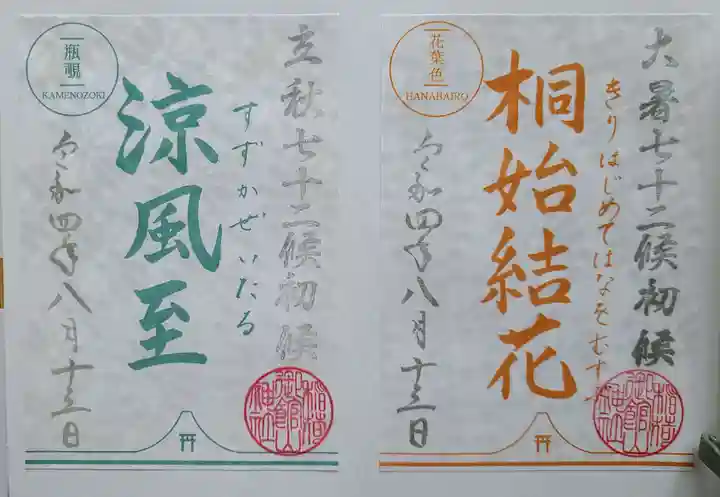 大暑七十二候初候
きりはじめてはなをむすぶ
桐始結花
花葉色
HANABAIRO
令和四年八月十三日
立秋七十二候初候
すずかぜいたる
涼風至
瓶覗
KAMENOZOKI
令和四年八月十三日